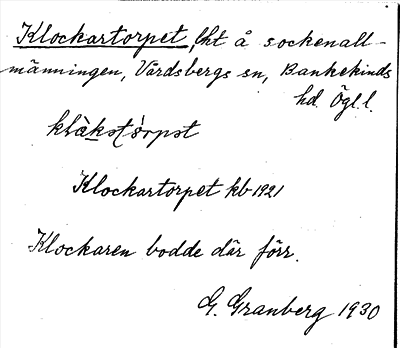 Klockartorpet, lht å sockenall-
männingen, Vårdsbergs sn, Bankekinds
hd. Ögl.l.
Klockartorpet kb 1921
Klockaren bodde där förr.
G. Granberg 1930